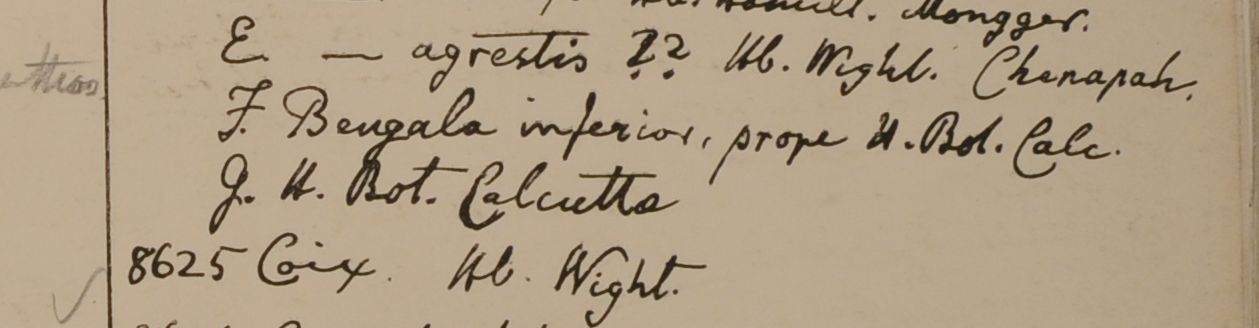 Hamilt. Mongger.
E. — agrestis ?? Hb. Wight. Chenapah.
F. Bengala inferior, prope H. Bot. Calc.
G. H. Bot. Calcutta
8625 Coix. Hb. Wight.